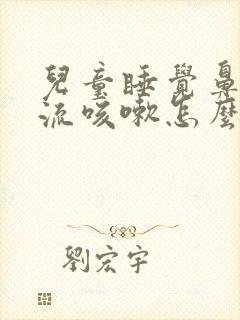 兒童睡覺鼻
流咳嗽怎麼
劉宏宇